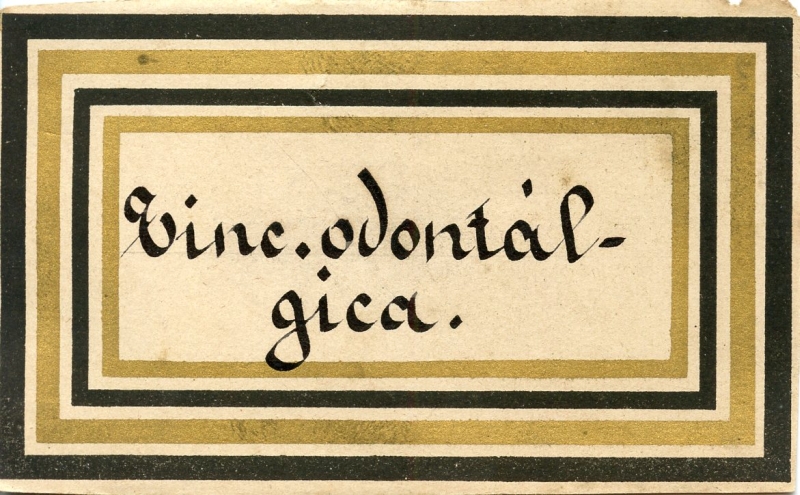 Tinc. odontál-
gica.